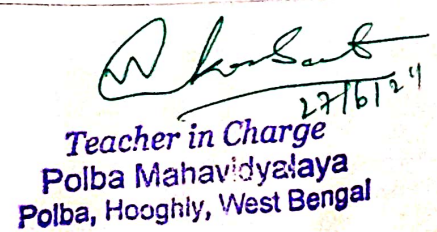 27/6/24
Teacher in Charge
Polba Mahavidyalaya
Polba, Hooghly, West Bengal